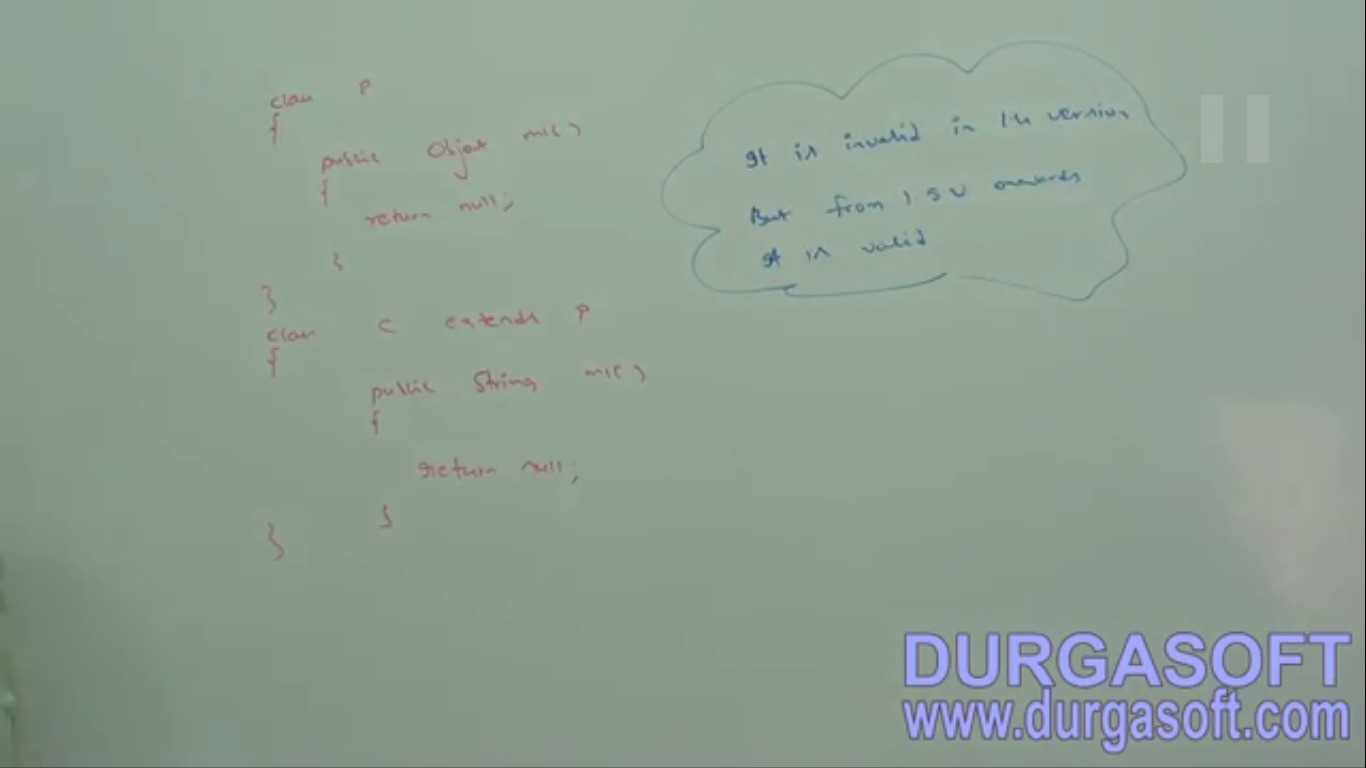 class P
{
public Object m1()
{
return null;
}
}
class C extends P
{
public String m1()
{
return null;
}
}
It is invalid in 1.4 version
But from 1.5 V onwards
It is valid
DURGASOFT
www.durgasoft.com